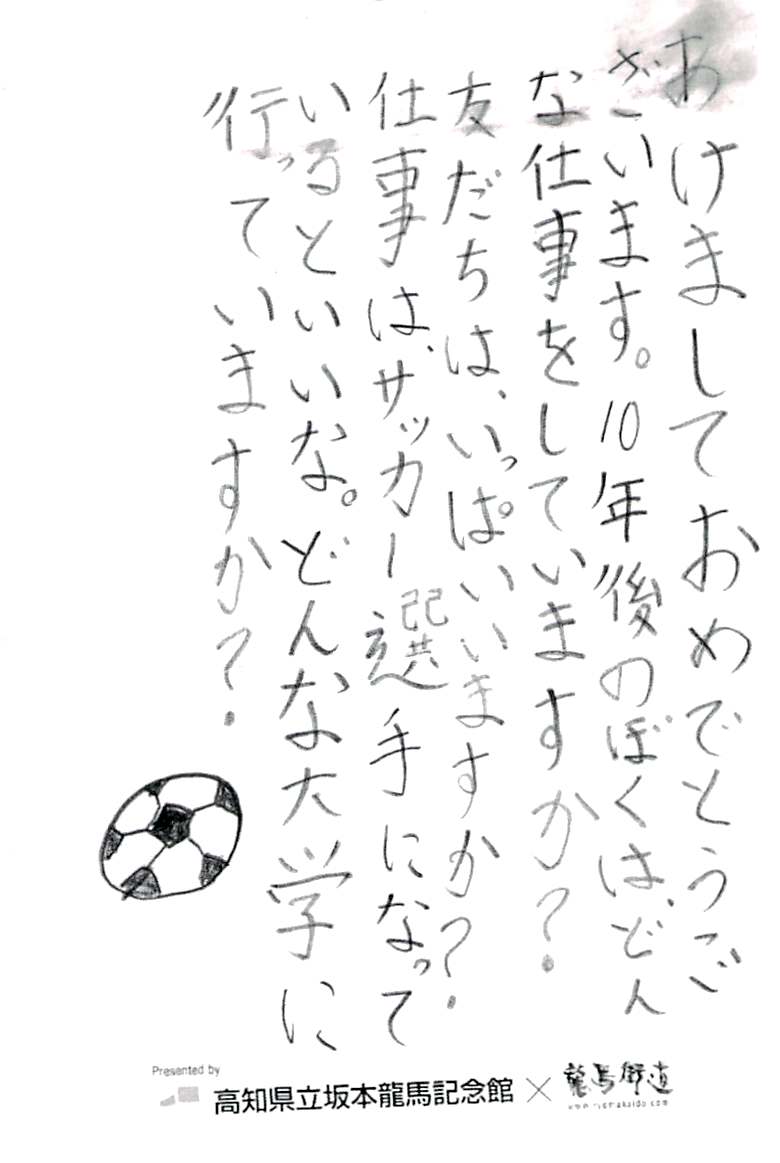 あけましておめでとうご
ざいます。10年後のぼくは、どん
な仕事をしていますか?
友だちは、いっぱいいますか?
仕事は、サッカー選手になって
いるといいな。どんな大学に
行っていますか?
Presented by
高知県立坂本龍馬記念館×龍馬街道
www.ryomakaido.com